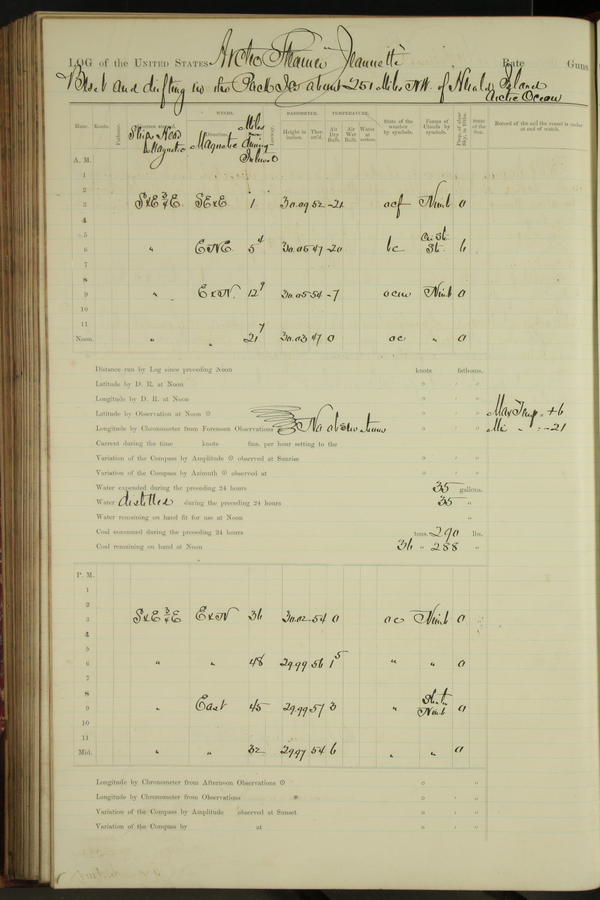 LOG of the UNITED STATES Arctic Steamer Jeannette Rate Guns
Beset and drifting in the Pack Ice about 251 Miles NW. of Herald Island
Arctic Ocean
WINDS. BAROMETER. TEMPERATURE.
Hour. Knots. Fathoms. Ship's Head Magnetic Magnetic Miles during Height in inches. Ther. att'd. Air Dry Bulb. Air Wet Bulb. Water at surface. State of the weather by symbols. Forms of Clouds by symbols. Prop. of clear Sky, in 10ths. State of the Sea. Record of the sail the vessel is under at end of watch.
A. M.
1
2
3 SxE ¾ E SExE 1 30.09 52 -21 ocf Nimb 0
4
5
6 " ENE 5 4 30.05 47 -20 bc Cir. St. St. 6
7
8
9 " ExN. 12 9 30.05 54 -7 ocm Nimb 0
10
11
Noon. " " 21 7 30.03 47 0 oc " 0
Distance run by Log since preceding Noon knots fathoms.
Latitude by D. R. at Noon ° ' "
Longitude by D. R. at Noon ° ' "
Latitude by Observation at Noon ☉ ° ' " Max Temp. +6
Longitude by Chronometer from Forenoon Observations No observations ° ' " Min " : -21
Current during the time knots fms. per hour setting to the
Variation of the Compass by Amplitude ☉ observed at Sunrise ° ' "
Variation of the Compass by Azimuth ☉ observed at ° ' "
Water expended during the preceding 24 hours 35 gallons.
Water distilled during the preceding 24 hours 35 "
Water remaining on hand fit for use at Noon "
Coal consumed during the preceding 24 hours tons. 290 lbs.
Coal remaining on hand at Noon 36 " 288 "
P. M.
1
2
3 SxE ¾ E ExN 36 30.02 54 0 oc Nimb 0
4
5
6 " " 48 29.99 56 1 5 " " 0
7
8
9 " East 45 29.99 57 3 " Nimb 0
10
11
Mid. " " 32 29.97 54 6 " " 0
Longitude by Chronometer from Afternoon Observations ☉ ° ' "
Longitude by Chronometer from Observations * ° ' "
Variation of the Compass by Amplitude observed at Sunset ° ' "
Variation of the Compass by at ° ' "